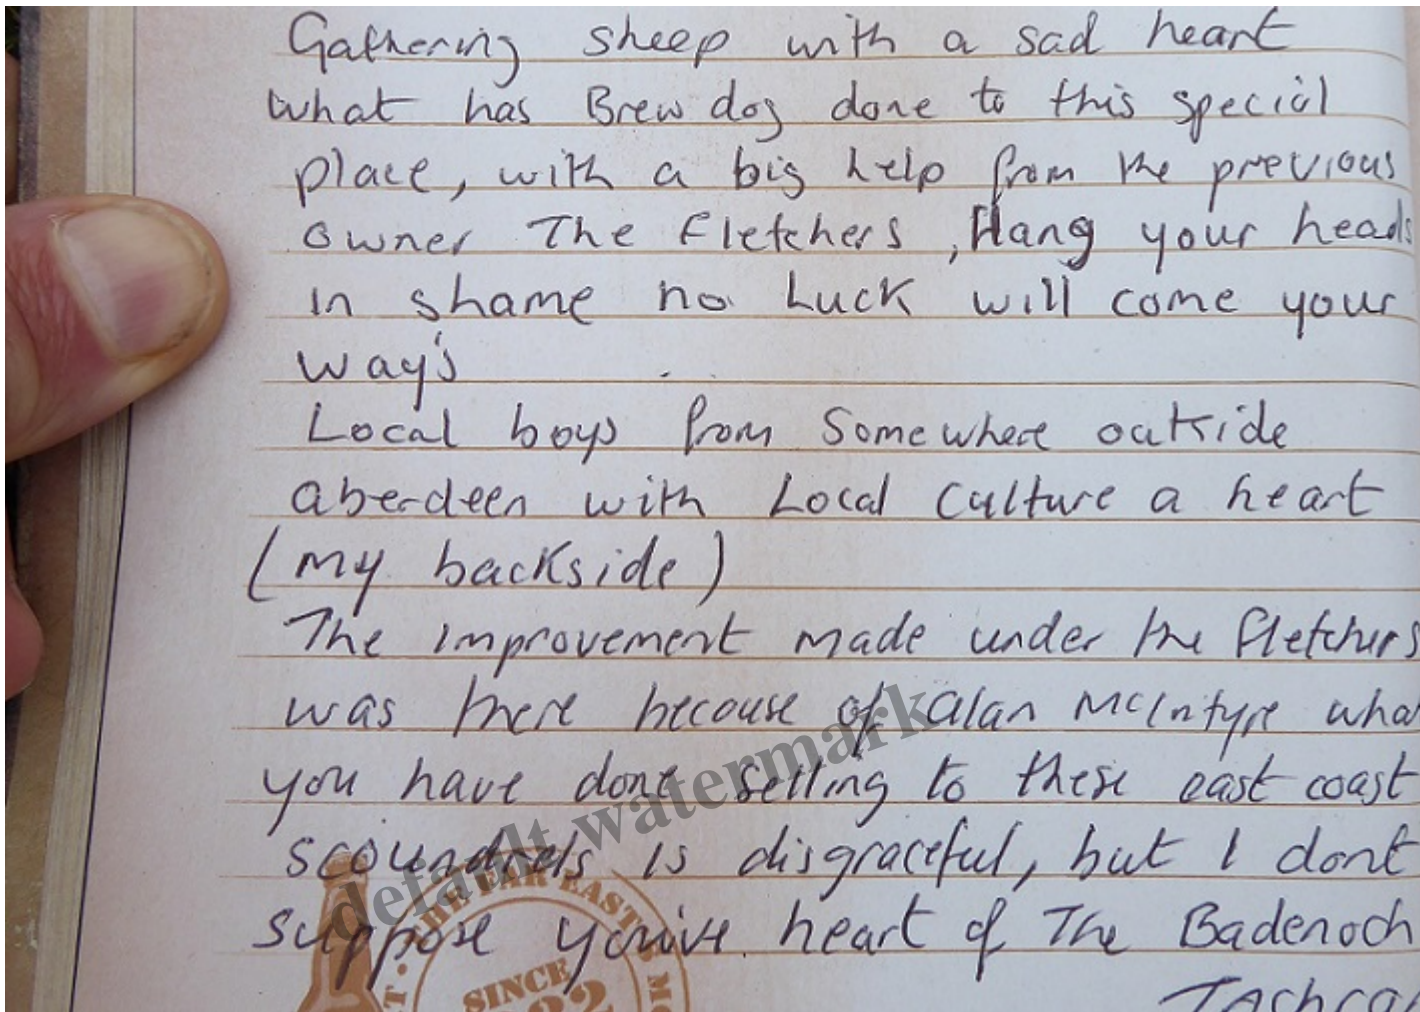 Gathering sheep with a sad heart
what has Brew dog done to this special
place, with a big help from the previous
owner The Fletchers, Hang your heads
in shame no Luck will come your
way's
Local boys from Somewhere outside
aberdeen with Local Culture a heart
(my backside)
The improvement made under the Fletchers
was there because of alan McIntyre what
you have done selling to these east coast
scoundrels is disgraceful, but I dont
suppose you've heart of The Badenoch
default watermark
THE FAR EAST
SINCE